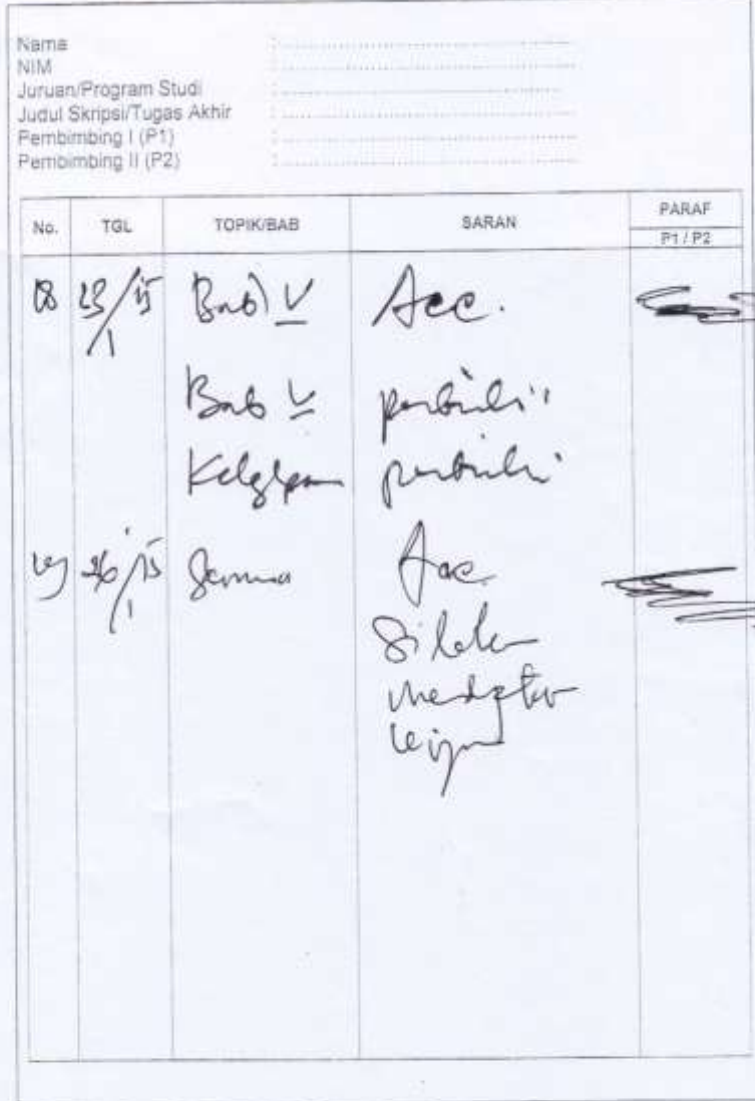 Nama :
NIM :
Juruan/Program Studi :
Judul Skripsi/Tugas Akhir :
Pembimbing I (P1) :
Pembimbing II (P2) :
No. TGL TOPIK/BAB SARAN PARAF
P1 / P2
23/15 Bab V Acc.
/1
Bab V perbaiki
perbaiki
26/15 Semua Acc.
/1
Silakan
mendaftar